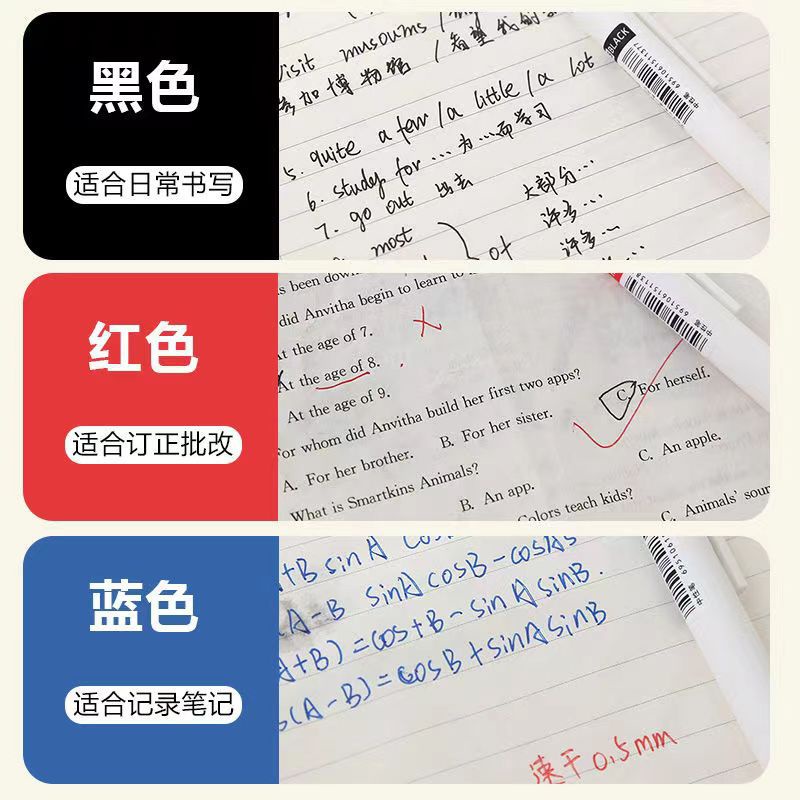 黑色
适合日常书写
visit musoums /
参加博物馆 / 希望我
5. quite a few / a little / a lot
6. study for … 为…而学习
7. go out 出去
大部分…
most
许多…
of
许多…
BLACK
6951061511377
中性笔
红色
适合订正批改
s been down
did Anvitha begin to learn to
At the age of 7.
At the age of 8.
At the age of 9.
For whom did Anvitha build her first two apps?
A. For her brother. B. For her sister. C. For herself.
What is Smartkins Animals?
B. An app. C. An apple.
Colors teach kids?
C. Animals' soun
中性笔
蓝色
适合记录笔记
+B sinA cos
A-B sinA cosB-cosAs
A+B)=cos+B-sinAsinB.
s(A-B)=cosB+sinAsinB
速干0.5mm
中性笔